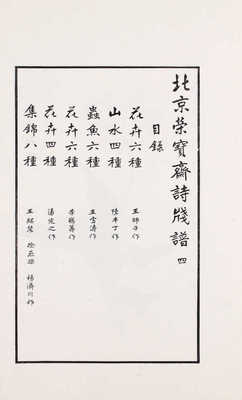 北京榮寶齋詩牋譜 四
目錄
花卉六種 王師子作
山水四種 陸辛丁作
蟲魚六種 王雪濤作
花卉六種 李鶴籌作
花卉四種 湯定之作
集錦八種 王紹楚 徐燕孫 楊濟川作